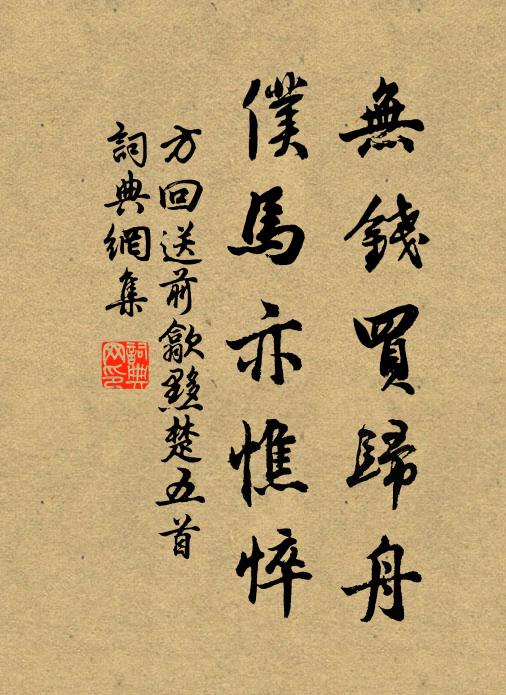 無錢買歸舟
僕馬亦憔悴
方回送前歙黟楚五首
詞典網集
詞典
网印